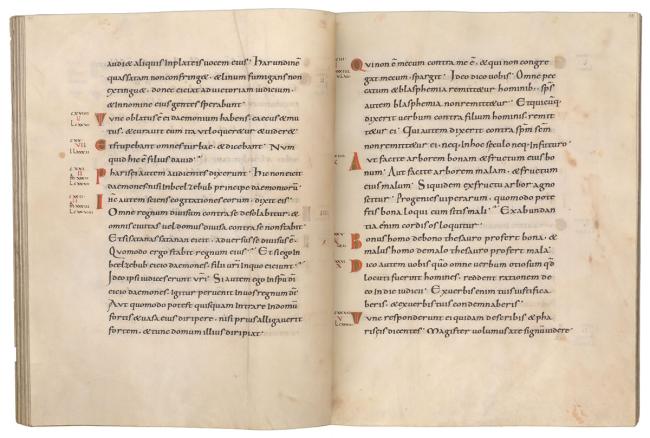 audi& aliquis inplateis uocem eius · Harundinē
quassatam nonconfring&, & linum fumigans non
extingu&, donec eiciat aduictoriam iudicium,
& innomine eius gentes sperabunt
Tunc oblatus ē ei daemonium habens, caecus & mu
tus, & curauit eum ita ut loqueretur & uider&
Et stupebant omnes turbae, & dicebant · Num
quid hic ē filius dauid
Pharisaei autem audientes dixerunt · Hic non eicit
daemones nisi inbeelzebub principe daemoniorū
Ihs autem sciens cogitationes eorum · dixit eis
Omne regnum diuisum contra se desolabitur, &
omnis ciuitas uel domus diuisa contra se non stabit
Et si satanas satanan eicit · aduersus se diuisus ē
Quomodo ergo stabit regnum eius · Et si ego in
beelzebub eicio daemones · filii uri inquo eiciunt
Ideo ipsi iudices erunt uri · Si autem ego inspū dī
eicio daemones · igitur peruenit inuos regnum dī
Aut quomodo potest quisquam intrare indomū
fortis & uasa eius diripere · nisi prius alligauerit
fortem, & tunc domum illius diripiat
Qui non ē mecum contra me ē, & qui non congre
gat mecum · spargit · Ideo dico uobis · Omne pec
catum & blasphemia remittetur hominib; sps
autem blasphemia non remittetur · Et quicūq;
dixerit uerbum contra filium hominis remit
tetur ei · Qui autem dixerit contra spm scm
non remittetur ei, neq; in hoc seculo neq; infuturo
Aut facite arborem bonam & fructum eius bo
num · Aut facite arborem malam · & fructum
eius malum · Siquidem exfructu arbor agno
scitur · Progenies uiperarum, quomodo pote
stis bona loqui cum sitis mali · Exabundan
tia enim cordis os loquitur
Bonus homo debono thesauro profert bona · &
malus homo demalo thesauro profert mala
Dico autem uobis qm̄ omne uerbum otiosum qđ
locuti fuerint homines · reddent rationem de
eo in die iudicii · Exuerbis enim tuis iustifica
beris · & exuerbis tuis condemnaberis
Tunc responderunt ei quidam describis & pha
riseis dicentes · Magister uolumus ate signū uidere